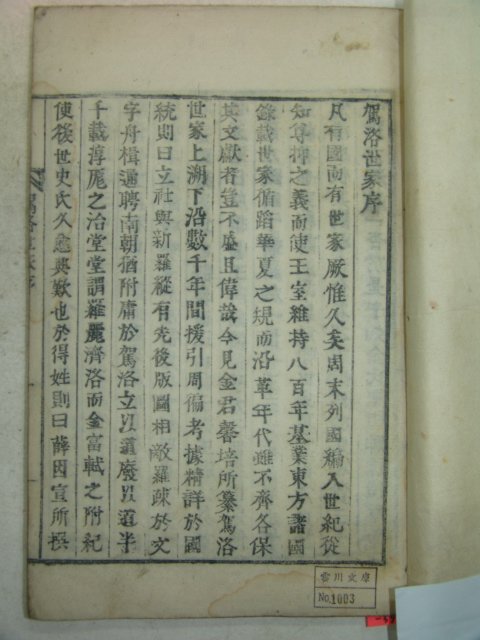 駕洛世家序
凡有國而有世家厥惟久矣周末列國編入世紀從
知尊抑之義而使王室維持八百年基業東方諸國
錄載世家循蹈華夏之規而沿革年代雖不齊各保
其文獻者豈不盛且偉哉今見金君馨培所纂駕洛
世家上溯下沿數千年間援引周徧考據精詳於國
統則曰立社與新羅縱有先後版圖相敵羅疎於文
字舟楫通聘南朝猶附庸於駕洛立以道廢以道半
千載淳厖之治堂堂謂羅麗濟洛而金富軾之附紀
使後世史氏久愈興歎也於得姓則曰薛因宣所撰
雲川文庫
No.1003